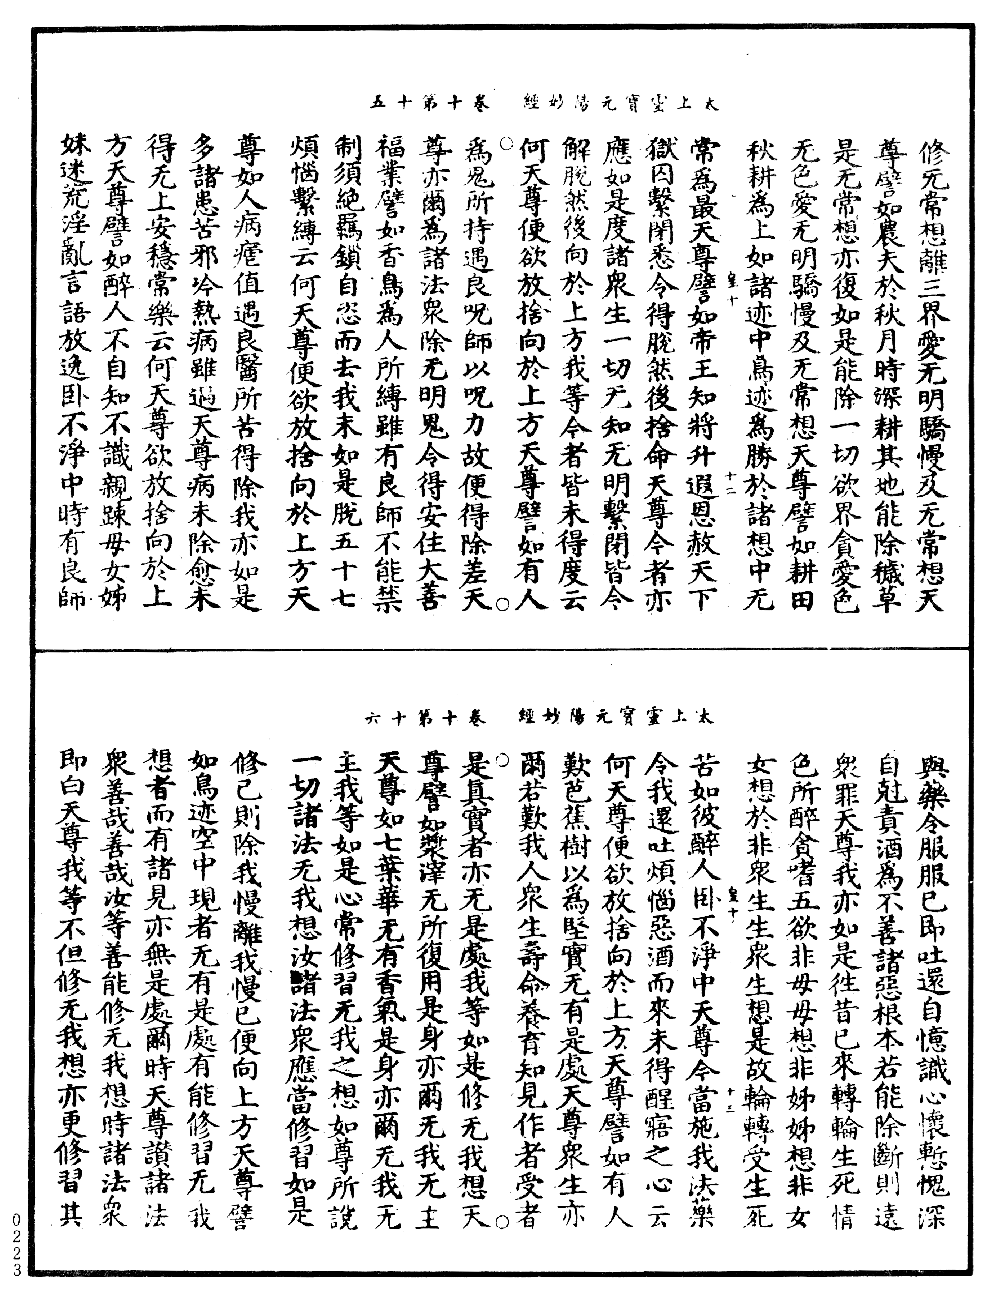 太上靈寶元陽妙經　卷十第十五
修无常想離三界愛无明驕慢及无常想天
尊譬如農夫於秋月時深耕其地能除穢草
是无常想亦復如是能除一切欲界貪愛色
无色愛无明驕慢及无常想天尊譬如耕田
秋耕為上如諸迹中鳥迹為勝於諸想中无
皇十　十二
常為最天尊譬如帝王知將升遐恩赦天下
獄囚繫閉悉令得脫然後捨命天尊今者亦
應如是度諸衆生一切无知无明繫閉皆令
解脫然後向於上方我等今者皆未得度云
何天尊便欲放捨向於上方天尊譬如有人
為鬼所持遇良呪師以呪力故便得除差天
尊亦爾為諸法衆除无明鬼令得安住大善
福業譬如香鳥為人所縛雖有良師不能禁
制須絶羈鎖自恣而去我未如是脫五十七
煩惱繫縛云何天尊便欲放捨向於上方天
尊如人病瘧值遇良醫所苦得除我亦如是
多諸患苦邪冷熱病雖遇天尊病未除愈未
得无上安穩常樂云何天尊欲放捨向於上
方天尊譬如醉人不自知不識親踈母女姊
妹迷荒淫亂言語放逸卧不淨中時有良師
太上靈寶元陽妙經　卷十第十六
與藥令服服已即吐還自憶識心懷慙愧深
自尅責酒為不善諸惡根本若能除斷則遠
衆罪天尊我亦如是徃昔已來轉輪生死情
色所醉貪嗜五欲非母母想非姊姊想非女
女想於非衆生生衆生想是故輪轉受生死
皇十　十三
苦如彼醉人卧不淨中天尊今當施我法藥
令我還吐煩惱惡酒而來未得醒寤之心云
何天尊便欲放捨向於上方天尊譬如有人
歎芭蕉樹以為堅實无有是處天尊衆生亦
爾若歎我人衆生壽命養育知見作者受者
是真實者亦无是處我等如是修无我想天
尊譬如漿滓无所復用是身亦爾无我无主
天尊如七葉華无有香氣是身亦爾无我无
主我等如是心常修習无我之想如尊所說
一切諸法无我想汝諸法衆應當修習如是
修已則除我慢離我慢已便向上方天尊譬
如鳥迹空中現者无有是處有能修習无我
想者而有諸見亦無是處爾時天尊讃諸法
衆善哉善哉汝等善能修无我想時諸法衆
即白天尊我等不但修无我想亦更修習其
0223